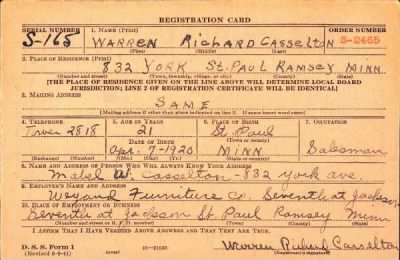 REGISTRATION CARD
SERIAL NUMBER 1. NAME (Print) ORDER NUMBER
S-165 WARREN RICHARD CASSELTON S-2465
(First) (Middle) (Last)
2. PLACE OF RESIDENCE (Print)
832 YORK ST. PAUL RAMSEY MINN
(Number and street) (Town, township, village, or city) (County) (State)
[THE PLACE OF RESIDENCE GIVEN ON THE LINE ABOVE WILL DETERMINE LOCAL BOARD
JURISDICTION; LINE 2 OF REGISTRATION CERTIFICATE WILL BE IDENTICAL]
3. MAILING ADDRESS
SAME
[Mailing address if other than place indicated on line 2. If same insert word same]
4. TELEPHONE 5. AGE IN YEARS 6. PLACE OF BIRTH 7. OCCUPATION
Tower 2818 21 St Paul
DATE OF BIRTH (Town or county)
Apr. 7-1920 MINN Salesman
(Exchange) (Number) (Mo.) (Day) (Yr.) (State or country)
8. NAME AND ADDRESS OF PERSON WHO WILL ALWAYS KNOW YOUR ADDRESS
Mabel W. Casselton - 832 York ave.
9. EMPLOYER'S NAME AND ADDRESS
Weyand Furniture Co. Seventh at Jackson
10. PLACE OF EMPLOYMENT OR BUSINESS
Seventh at Jackson St. Paul Ramsey Minn
(Number and street or R. F. D. number) (Town) (County) (State)
I AFFIRM THAT I HAVE VERIFIED ABOVE ANSWERS AND THAT THEY ARE TRUE.
D. S. S. Form 1 Warren Richard Casselton